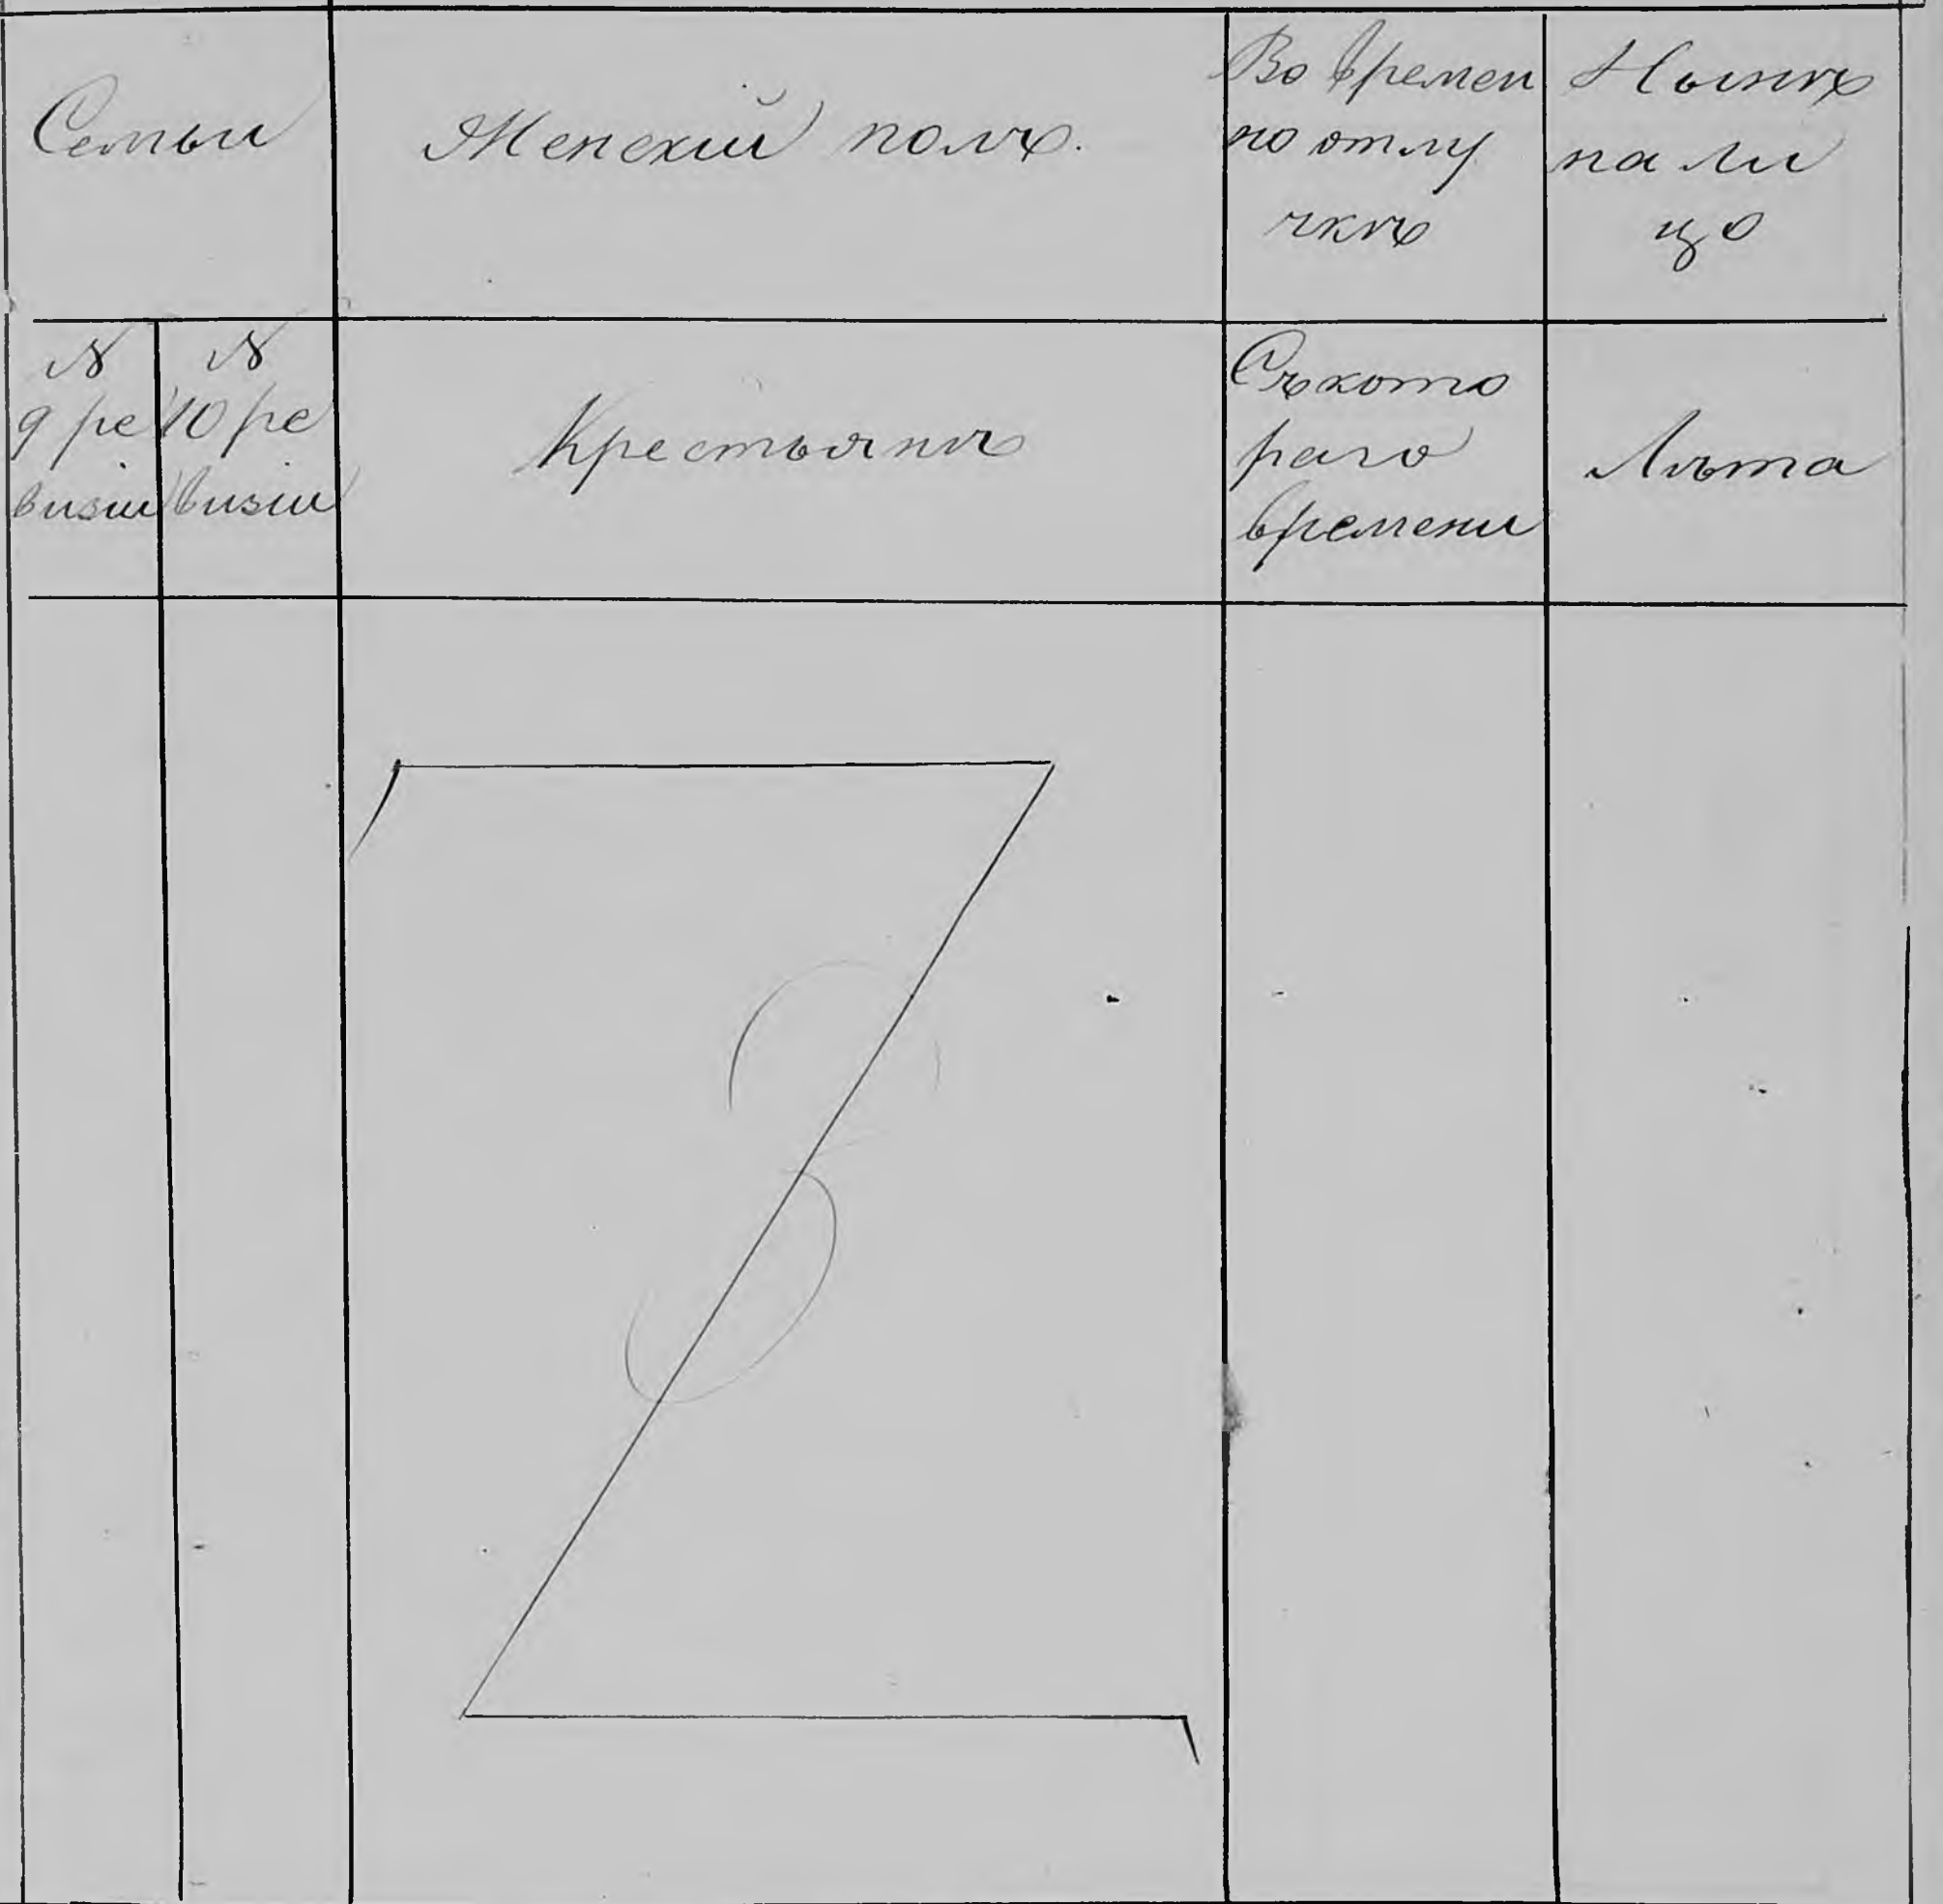 Семьи
Женский полъ.
Во времен
но отлу
чкѣ
Нынѣ
на ли
цо
№
9 ре
визіи
№
10 ре
визіи
Крестьянъ
Съ кото
раго
времени
Лѣта